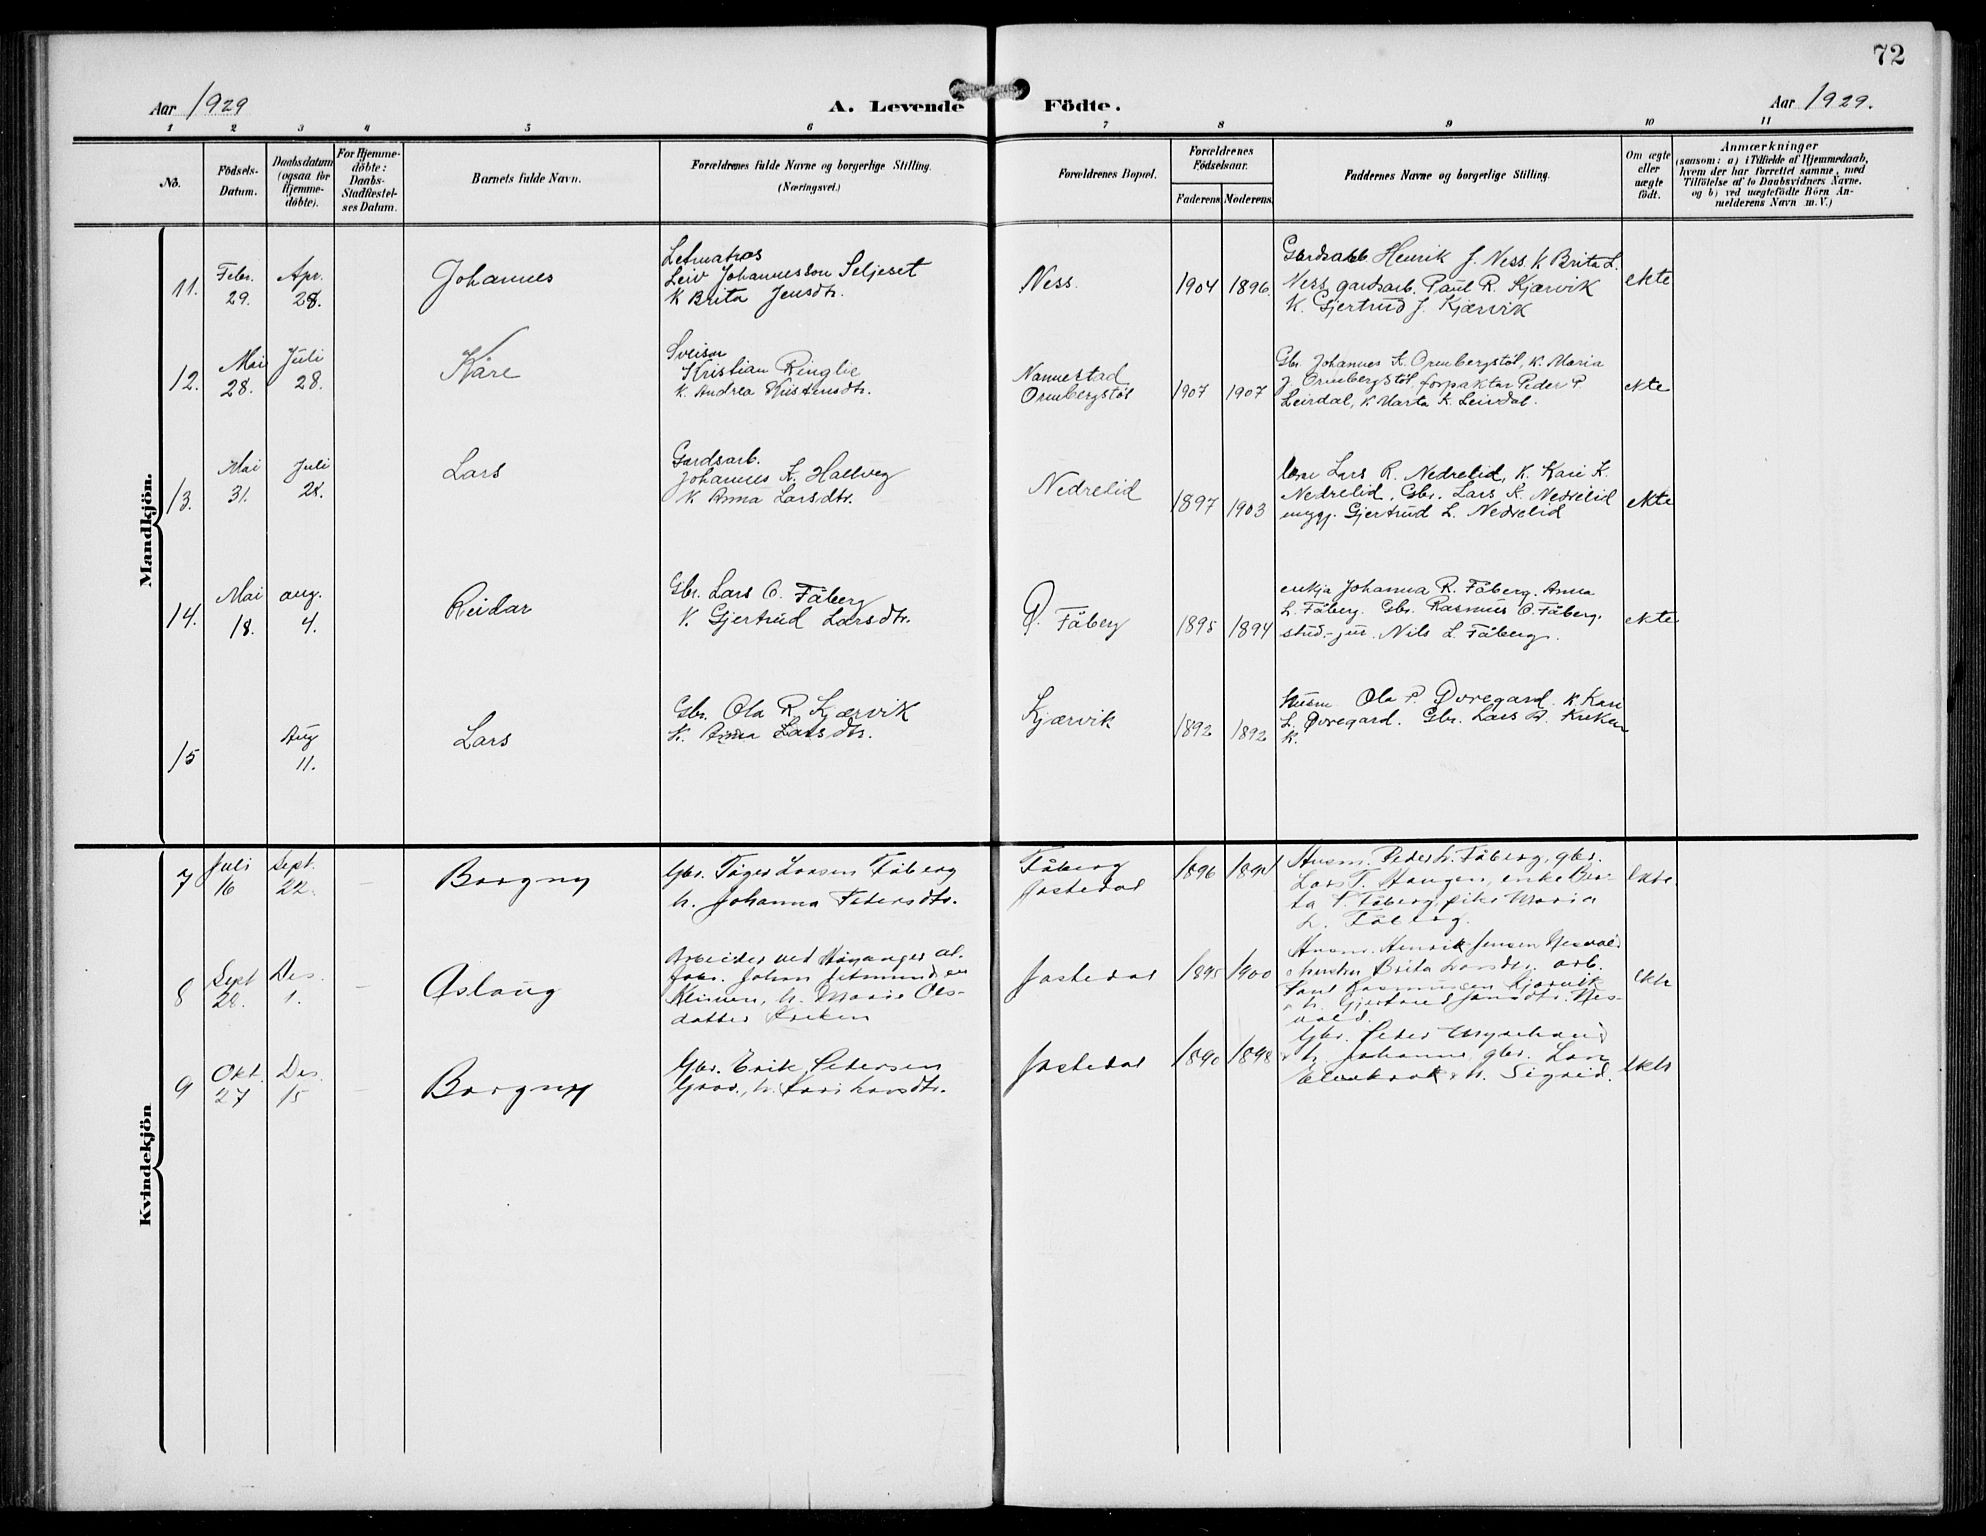 72
Aar 1929
A. Levende Födte.
Aar 1929.
1 2 3 4 5 6 7 8 9 10 11
No.
Födsels-
Datum.
Daabsdatum
(ogsaa for
Hjemme-
döbte).
For Hjemme-
döbte:
Daabs-
Stadfæstel-
ses Datum.
Barnets fulde Navn.
Forældrenes fulde Navne og borgerlige Stilling.
(Næringsvei.)
Forældrenes Bopæl.
Forældrenes
Födselsaar.
Faderens Moderens
Faddernes Navne og borgerlige Stilling.
Om ægte
eller
uægte
födt.
Anmærkninger
(saasom: a) i Tilfælde af Hjemmedaab,
hvem der har forrettet samme, med
Tilföielse af to Daabsvidners Navne,
og b) ved uægtefödte Börn An-
melderens Navn m. V.)
Mandkjön.
11.
Febr.
29.
Apr.
28.
Johannes
Letmatros
Leiv Johannesson Seljeset
K Brita Jensdtr.
Ness.
1904 1896.
Gardsarb. Henrik J. Ness. K Brita L.
Ness gardsarb. Paul R. Kjærvik
K. Gjertrud J. Kjærvik
ekte
12.
Mai
28.
Juli
28.
Kåre
Sveiser
Kristian Ringlie
K. Andrea Kristensdtr.
Nannestad
Ormbergstöl
1907 1907
Gbr. Johannes K. Ormbergstöl, K. Maria
J. Ormbergstöl, forpaktar Peder P.
Leirdal, K Marta K. Leirdal.
ekte
13.
Mai
31.
Juli
28.
Lars
Gardsarb.
Johannes A. Haltveg
K Anna Larsdtr.
Nedrelid
1897 1903
Lars R. Nedrelid, K. Kari K.
Nedrelid, Gbr. Lars K. Nedrelid
ungg. Gjertrud L. Nedrelid
ekte
14.
Mai
18.
aug.
4.
Reidar
Gbr. Lars O. Fåberg
K. Gjertrud Larsdtr.
Ø. Fåberg
1895 1894
enkja Johanna R. Fåberg. Anna
L. Fåberg. Gbr. Rasmus O. Fåberg.
stud. jur. Nils L. Fåberg.
ekte
15
Aug
11.
Lars
Gbr. Ola R. Kjærvik
K. Larsdtr.
Kjærvik
1892 1892
Husm Ola P. Øvregard. K Kari
L. Øvregard. Gbr. Lars A. Kreken
K.
Kvindekjön
7
Juli
16
Sept.
22.
–
Borgny
Gbr. Töger Larsen Fåberg
h. Johanna Pedersdtr.
Fåberg
Jostedal
1896 1894
Husm. Peder L. Fåberg, gbr.
Lars T. Haugen, enke Ber-
ta T. Fåberg, pike Maria
L. Fåberg.
ekte.
8
Sept
28.
Des.
1.
–
Aslaug
Arbeider ved Høyanger al.
fabr. Johan Åsmundsen
h. Marie Ols-
datter Kreken
Jostedal
1895 1900
Husm. Henrik Jensen Nesvold
hustru Brita Larsdtr, arb.
Paul Rasmussen Kjervik
h. Gjertrud Jensdtr. Nes-
vold.
ekte
9
Okt.
27
Des.
15
–
Borgny
Gbr. Erik Pedersen
Grov, h. Kari Larsdtr.
Jostedal
1890 1898
Gbr. Peder Myklemyr
h. Johanne, gbr. Lars
Elvekrok h. Sigrid.
ekte